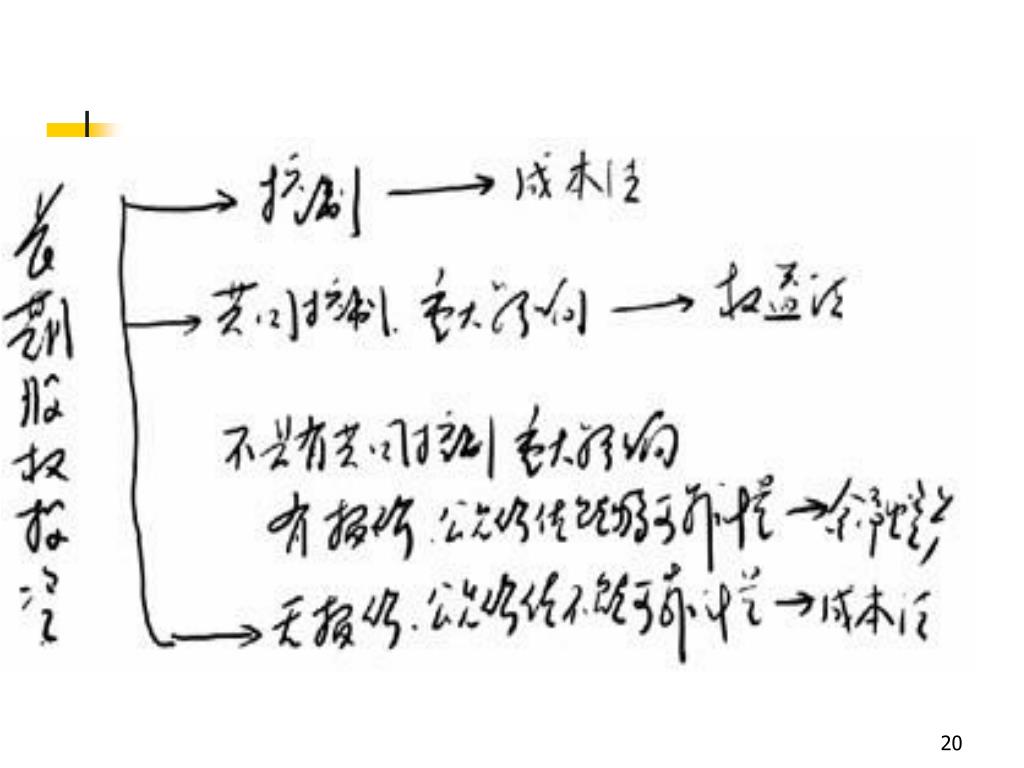 长期股权投资
控制 → 成本法
共同控制、重大影响 → 权益法
不具有共同控制 重大影响
有报价、公允价值能够可靠计量 →
无报价、公允价值不能可靠计量 → 成本法
20